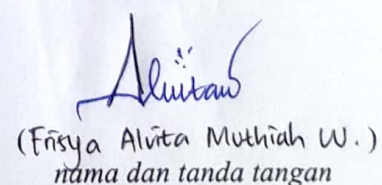 Alvitaw
(Frisya Alvita Muthiah W.)
nama dan tanda tangan